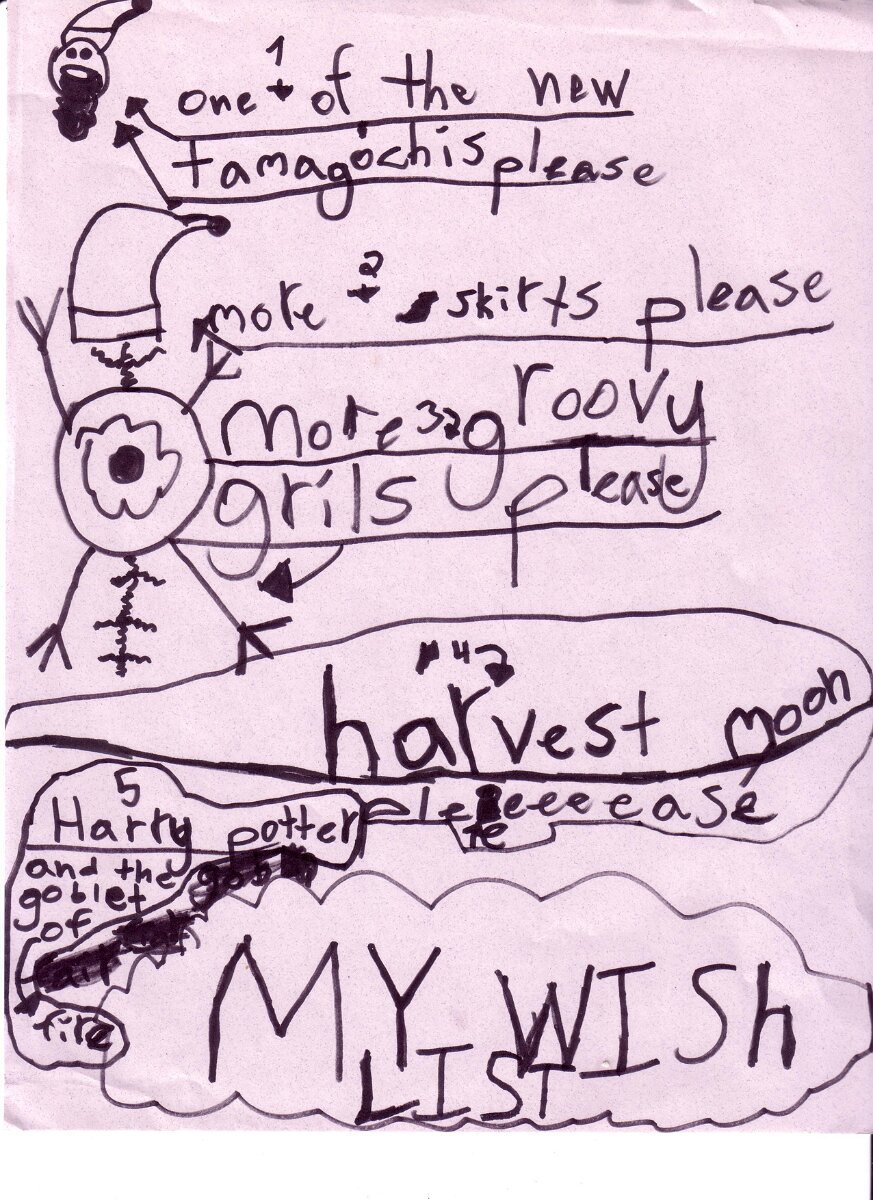 1
one of the new
tamagochis please
2
more skirts please
3
More groovy
grils please
4
harvest moon
pleeeeease
5
Harry potter
and the goblin
goblet
of
fire
MY WISh
LIST